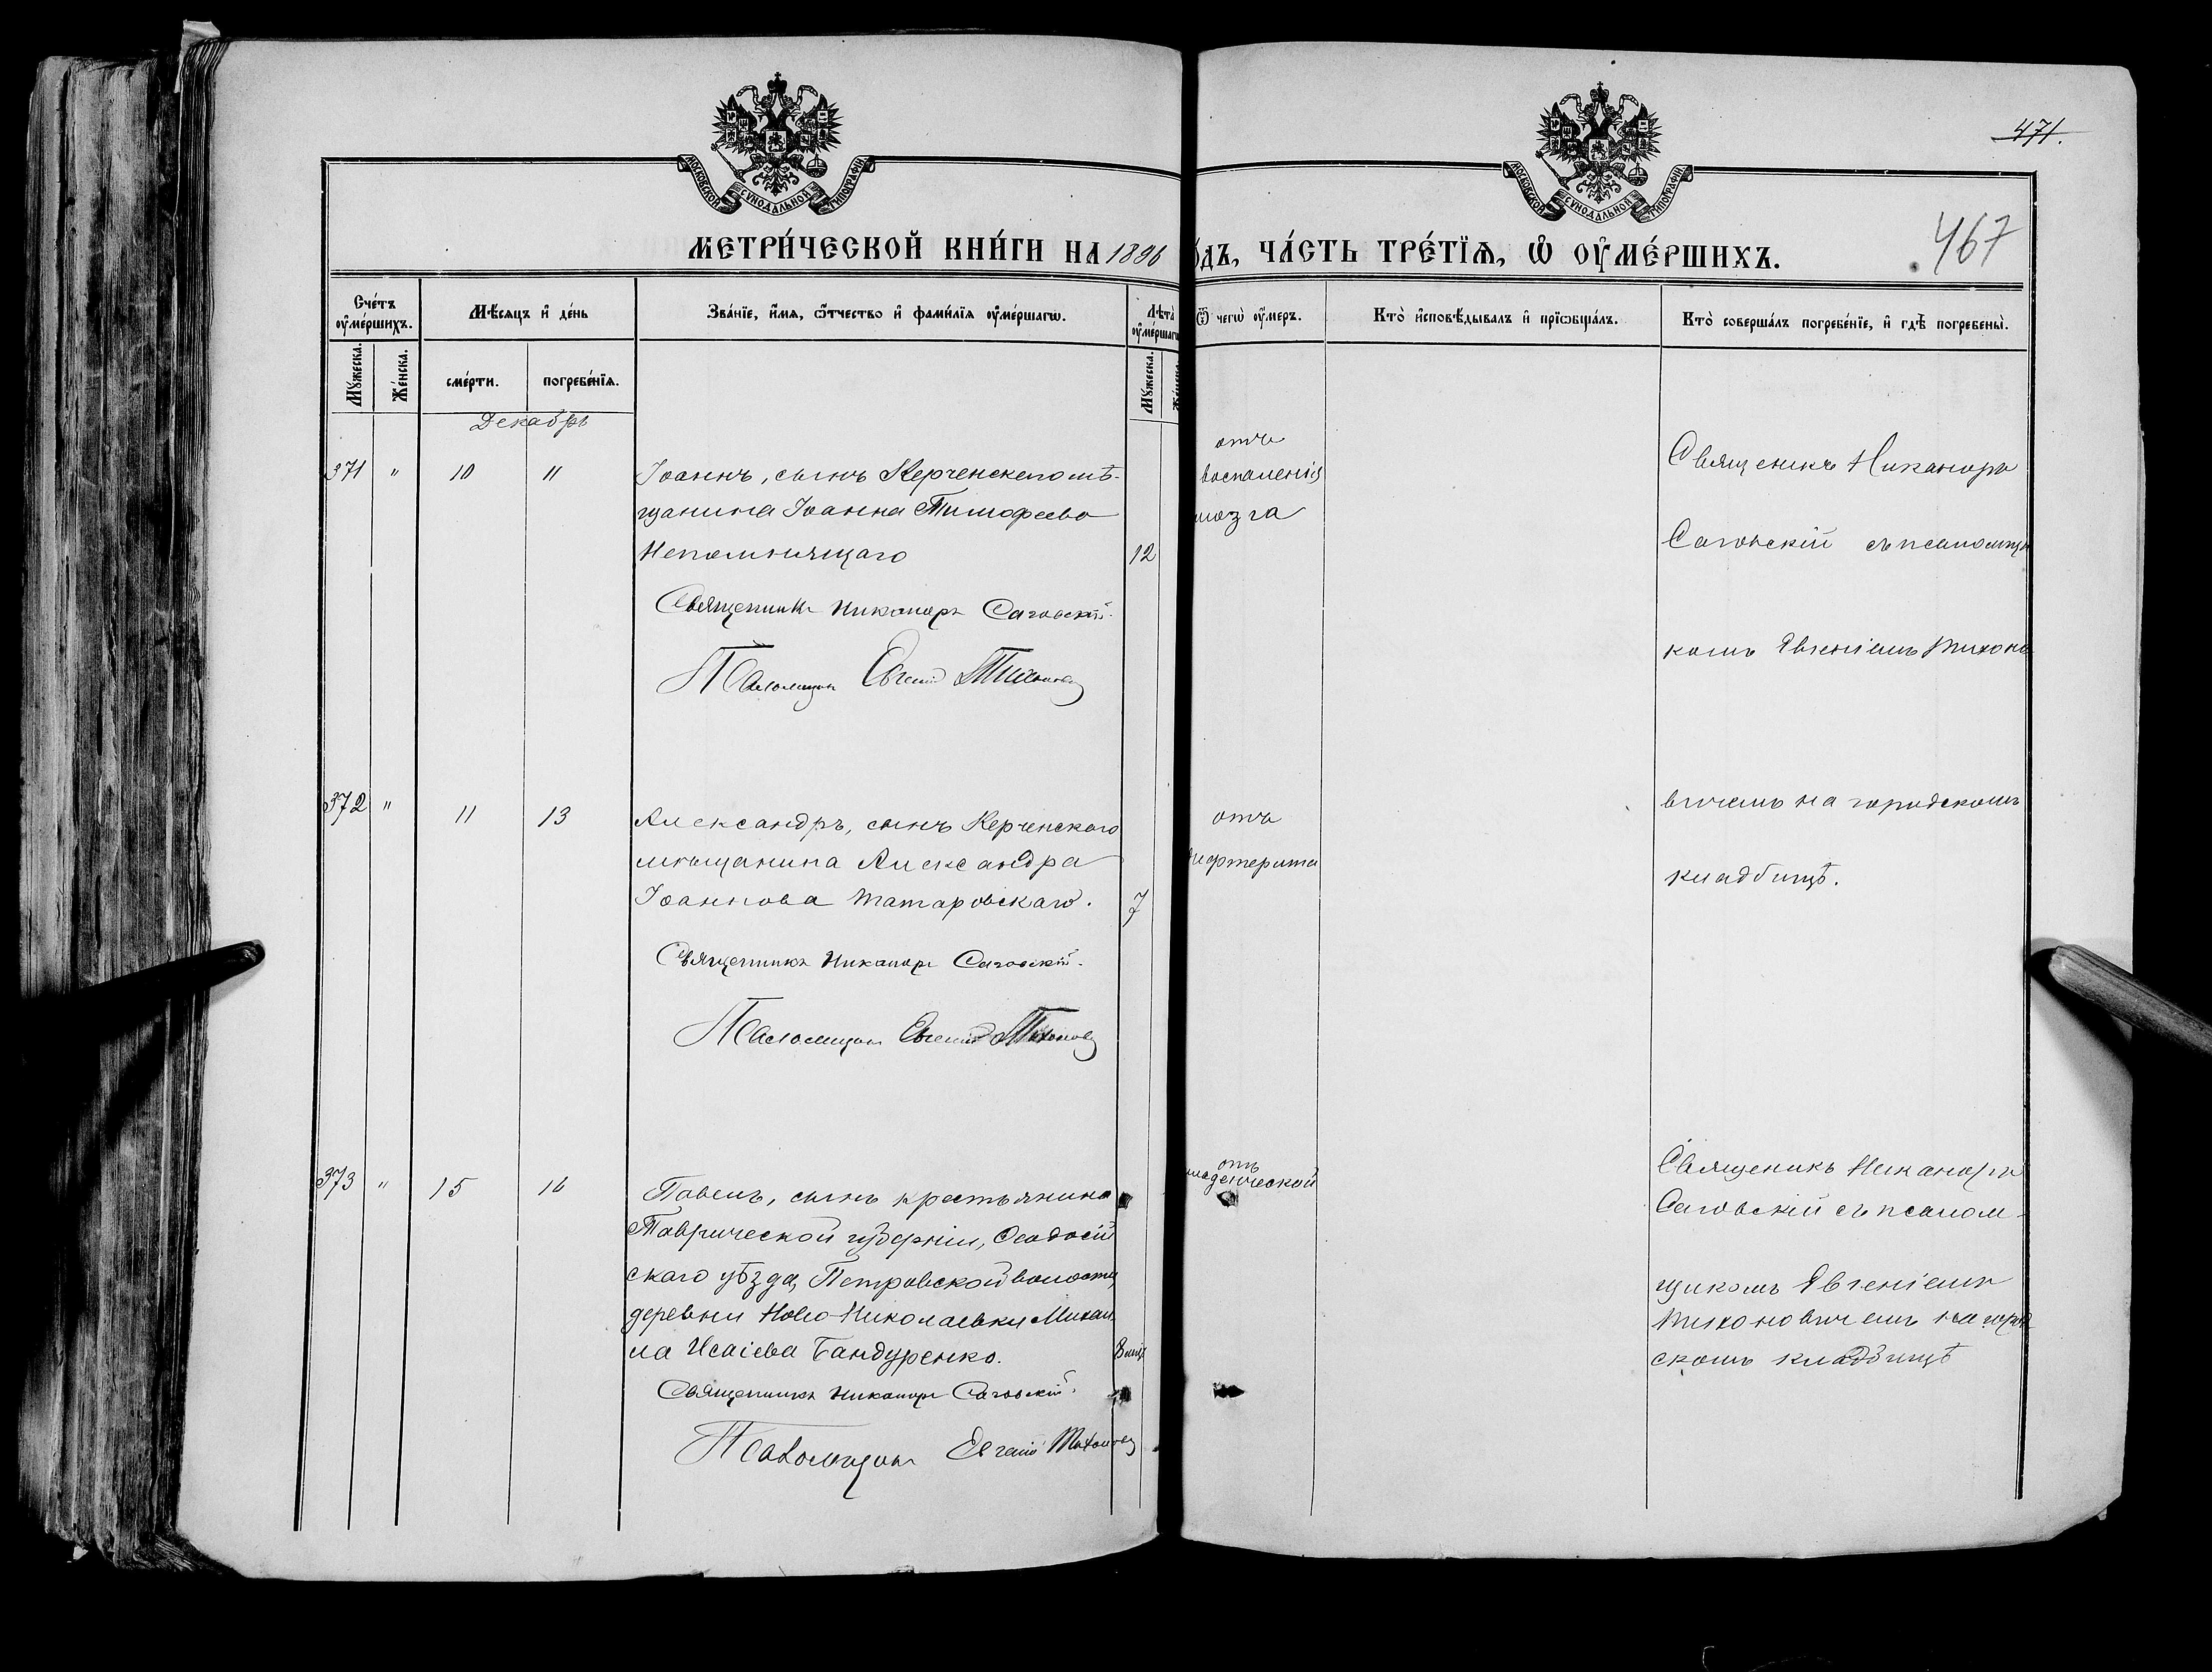 МОСКОВСКОЙ СѴНОДАЛЬНОЙ ТИПОГРАФІИ
МОСКОВСКОЙ СѴНОДАЛЬНОЙ ТИПОГРАФІИ
471.
467
МЕТРИ́ЧЕСКОЙ КНИ́ГИ НА 1896
о́дъ, ЧА́СТЬ ТРЕ́ТЇѦ, Ѡ҆ ОУ҆МЕ́РШИХЪ.
Сче́тъ оу҆ме́ршихъ.
Мѣ́сяцъ и҆ де́нь
Зва́нїе, и҆́мѧ, ѻ҆́тчество и҆ фами́лїѧ оу҆ме́ршагѡ.
Лѣ́та оу҆ме́ршагѡ
Ѿ чегѡ̀ оу҆́меръ.
Кто̀ и҆сповѣ́дывалъ и҆ прїѡбща́лъ.
Кто̀ соверша́лъ погребе́нїе, и҆ гдѣ̀ погребены̀.
Мꙋ́жеска.
Же́нска.
сме́рти.
погребе́нїѧ.
Мꙋ́жеска.
Декабрь
371 " 10 11
Іоаннъ, сынъ Керченскаго мѣ-
щанина Іоанна Тимофеева
Непомнящаго 12
Священникъ Никаноръ Саговскій.
Псаломщикъ Евгеній Тихоновъ
отъ
воспаленія
мозга
Священикъ Никаноръ
Саговскій съ псаломщи
комъ Евгеніемъ Тихоно
вичемъ на городскомъ
кладбищѣ.
372 " 11 13
Александръ, сынъ Керченскаго
мѣщанина Александра
Іоаннова Татаровскаго. 7
Священникъ Никаноръ Саговскій.
Псаломщикъ Евгеній Тихоновъ
отъ
дифтерита
373 " 15 16
Павелъ, сынъ крестьянина
Таврической губерніи, Ѳеодосій
скаго уѣзда, Петровской волости,
деревни Ново-Николаевки Михаи
ла Исаіева Бандуренко. 8 мѣс
Священникъ Никаноръ Саговскій.
Псаломщикъ Евгеній Тихоновъ
отъ
младенческой
Священикъ Никаноръ
Саговскій съ псалом-
щикомъ Евгеніемъ
Тихоновичемъ на город
скомъ кладбищѣ